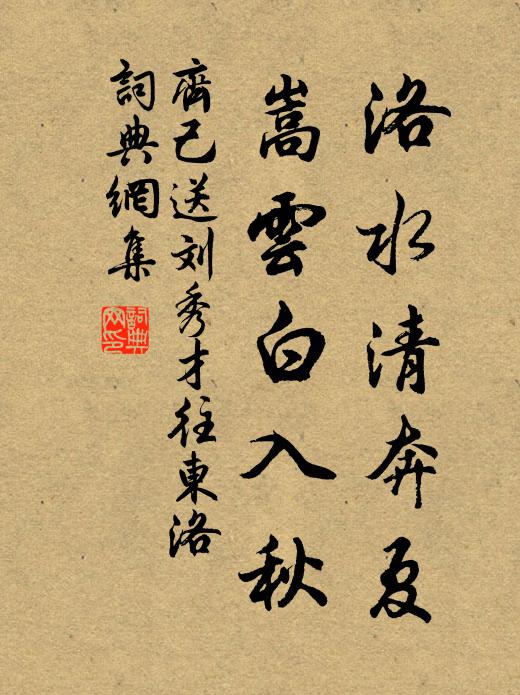 洛水清奔夏
嵩雲白入秋
齊己送刘秀才往東洛
詞典網集
詞典网印